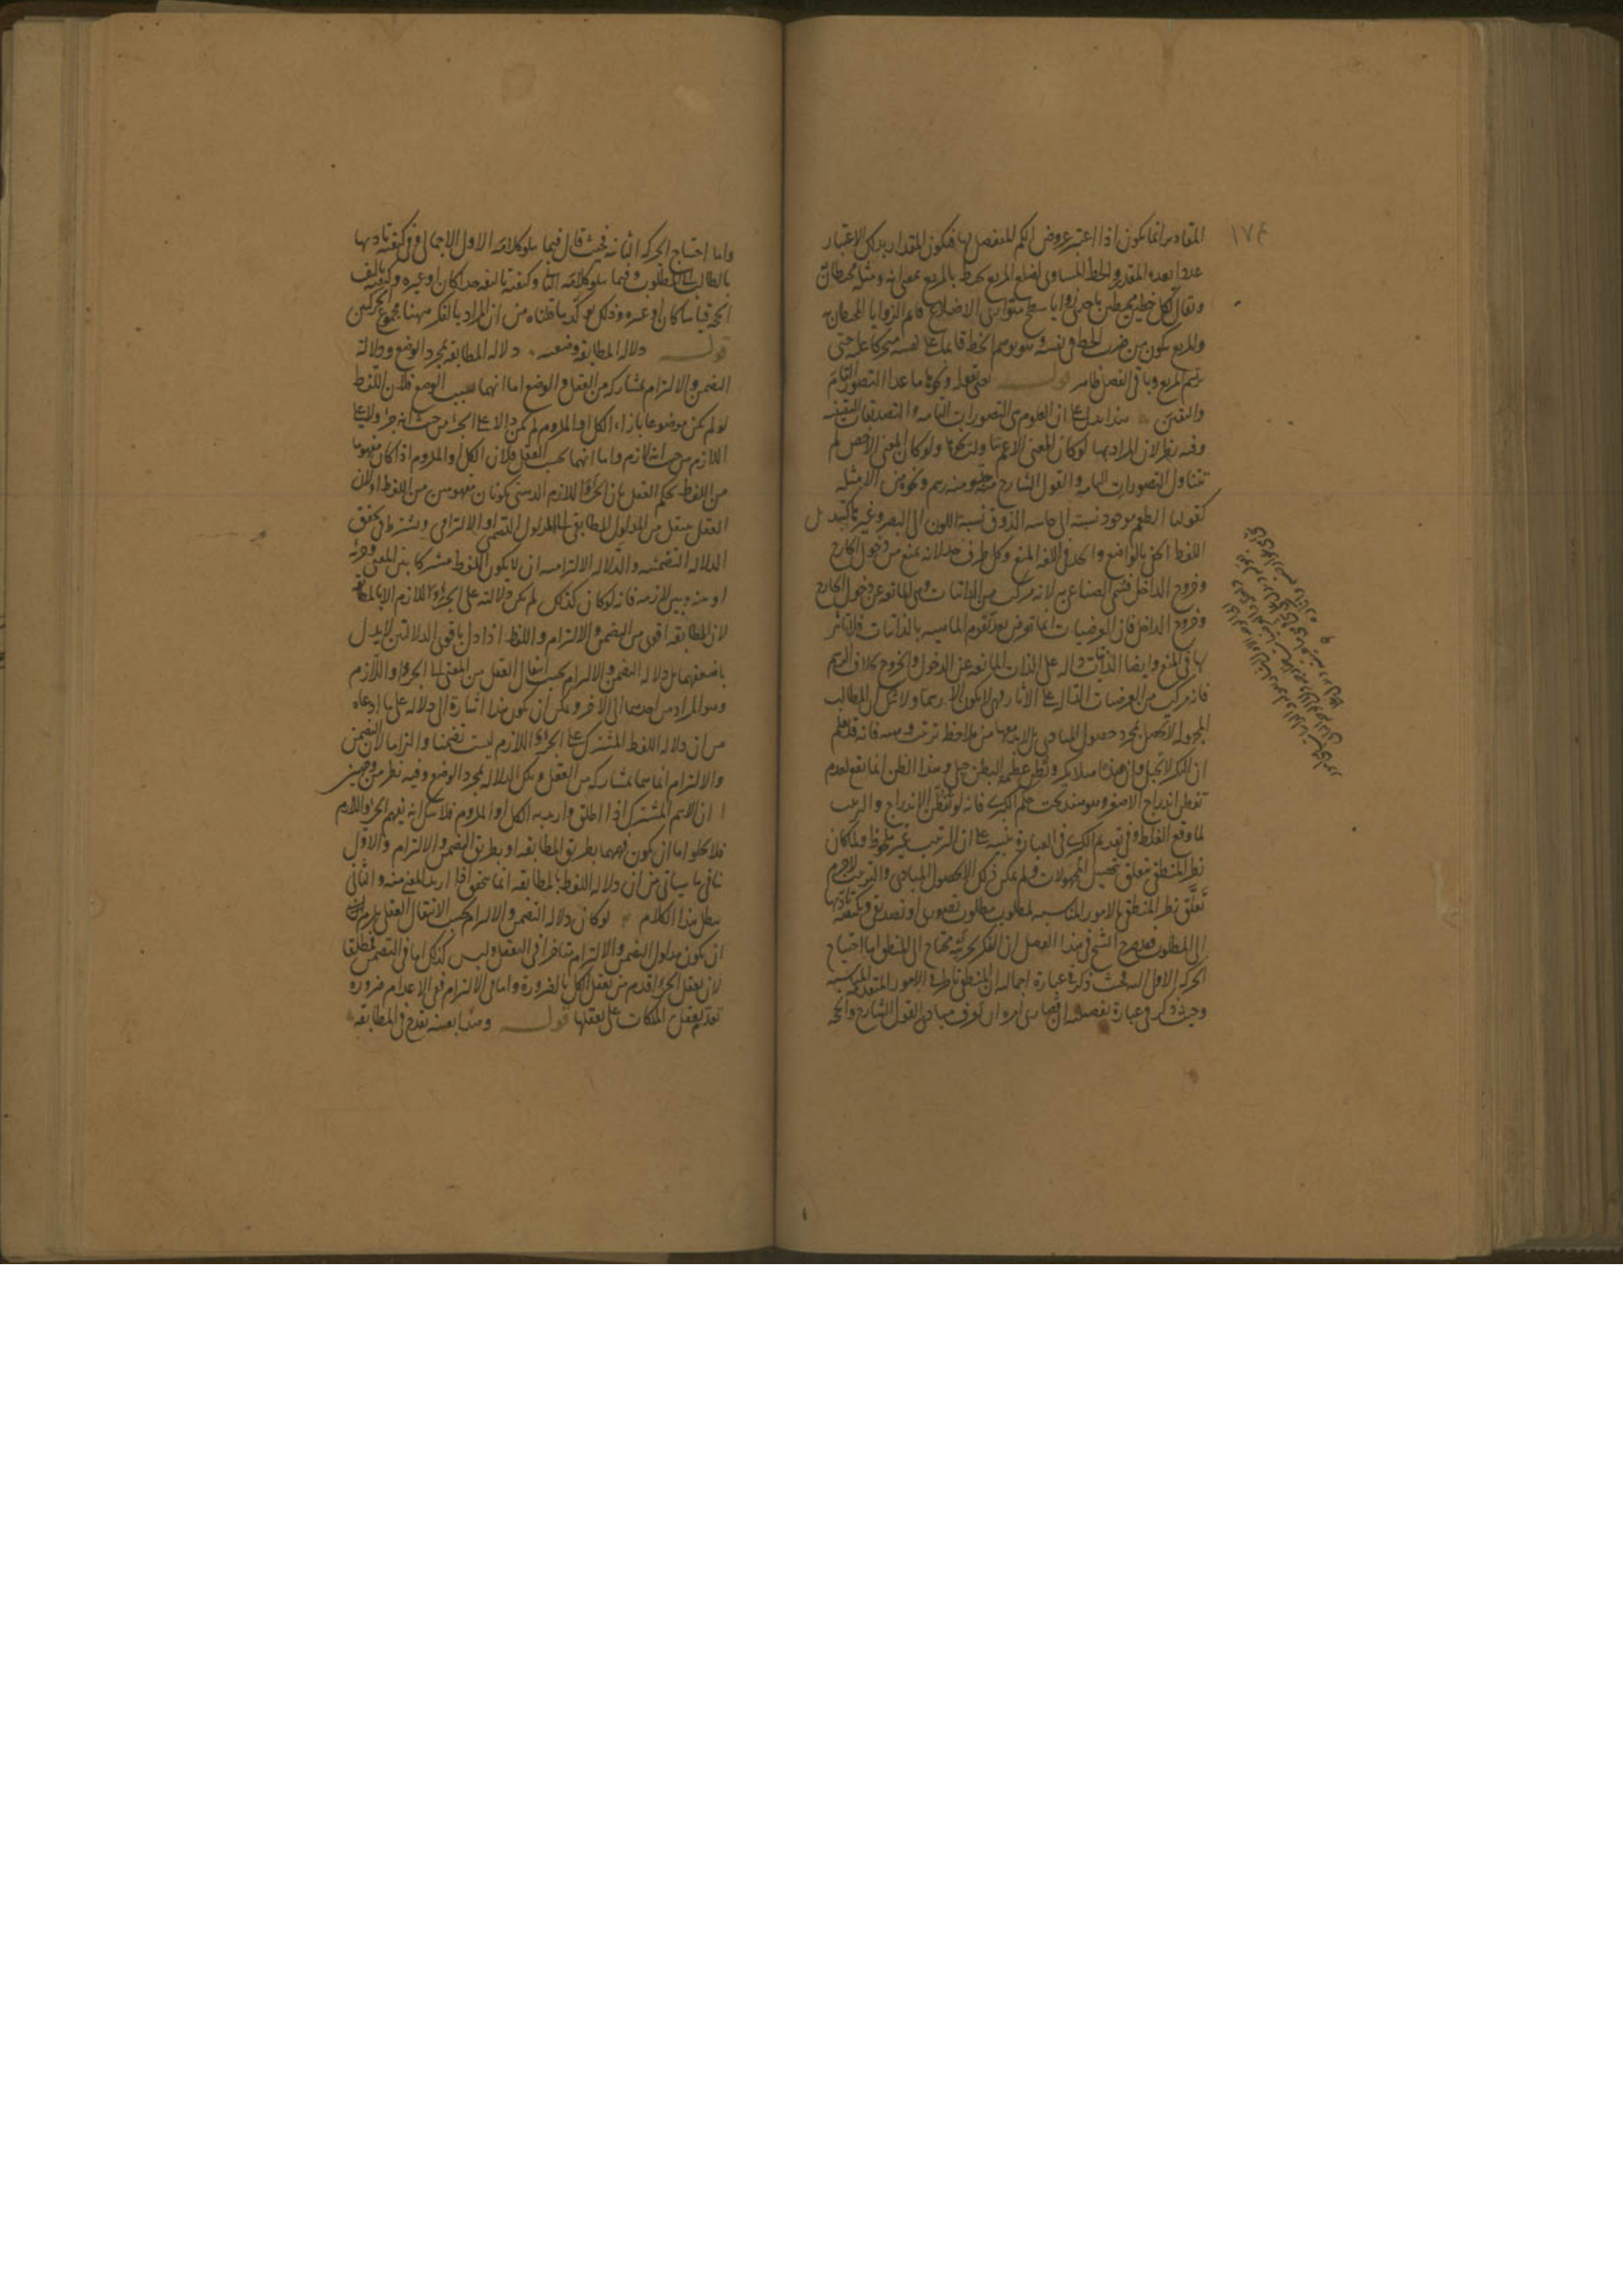 ١٧٤
المقادير انما يكون اذا اعتبر عروض الكم المنفصل لها فيكون المقدار بذلك الاعتبار
عددا يعده المقدر والخط المساوي لضلع المربع يحيط بالمربع بمعنى انه ومثله محيطان
ويقال لكل خطين محيطين باحدى زوايا سطح متوازي الاضلاع قائم الزوايا المحيطان به
والمربع يكون من ضرب الخط في نفسه وهو توهم الخط قائما على نفسه متحركا عليه حتى
يرسم المربع وباقي الفصل ظاهر قوله حتى تعلمه ونحوها ما عدا التصور التام
واليقين هذا يدل على ان العلوم هي التصورات التامة والتصديقات اليقينية
وفيه نظر لان المراد بها لو كان المعنى الاعم ولو كان المعنى الاخص لم
تتناول التصورات التامة والقول الشارح منه حد ومنه رسم ونحوه من الامثلة
كقولنا الطعم موجود نسبته الى حاسة الذوق نسبة اللون الى البصر وغير ما كتبدل
اللفظ اكثر بالواضع والحد في اللغة المنع وكل طرف حد لانه يمنع من دخول الخارج
وخروج الداخل فسمي الصناعي به لانه مركب من الذاتيات وهي المانعة عن دخول الخارج
وخروج الداخل فان العرضيات انما تعرض بعد تقوم الماهية بالذاتيات فلا تاثير
لها في المنع وايضا الذاتيات دالة على الذات المانعة عن الدخول والخروج بخلاف الرسم
فانه مركب من العرضيات الدالة على الآثار فهي لا يكون الا رسما ولا شك ان المطالب
المجهولة لا تحصل بمجرد حصول المبادي بل لا بد معها من ملاحظة ترتيب وهيئة فانه قد يعلم
ان البكر لا تحبل وان هذه مثلا بكر ونظن عظيمة البطن حبلى وهذا الظن انما يقع لعدم
تفطن اندراج الاصغر وهو هند تحت حكم الكبرى فانه لو تفطن الاندراج والترتيب
لما وقع الغلط وفي تقديم الكبرى في العبارة تنبيه على ان الترتيب غير ملحوظ ولما كان
نظر المنطقي متعلق بتحصيل المجهولات ولم يمكن ذلك الا بحصول المبادي والترتيب لا جرم
تعلق نظر المنطقي بالامور المناسبة لمطلوب مطلوب تصوري او تصديقي وبكيفية تاديها
الى المطلوب فصرح الشيخ في هذا الفصل ان الفكر بجزئيه محتاج الى المنطق اما احتياج
الحركة الاولى اليه فحيث ذكر في عبارة اجمالية ان المنطقي ناظر في الامور المتقدمة المناسبة
وحيث ذكر في عبارة تفصيلية ان قصارى امره ان يعرف مبادي القول الشارح والحجة
واما احتياج الحركة الثانية فحيث قال فيما يتلو كلامه الاول الاجمالي وفي كيفية تاديها
بالطالب الى المطلوب وفيما يتلو كلامه الثاني وكيفية تاليفه حدا كان او غيره وكيفية تاليف
الحجة قياسا كان او غيره وذلك يؤكد ما قلناه من ان المراد بالفكر ههنا مجموع الحركتين
قوله دلالة المطابقة وضعية دلالة المطابقة بمجرد الوضع ودلالة
التضمن والالتزام بمشاركة من العقل والوضع اما انهما بسبب الوضع فلان اللفظ
لو لم يكن موضوعا بازاء الكل او الملزوم لم يكن دالا على الجزء من حيث انه جزء ولا على
اللازم من حيث انه لازم واما انهما بحسب العقل فلان الكل والملزوم اذا كان مفهوما
من اللفظ يحكم العقل بان الجزء واللازم الذهني يكونان مفهومين من اللفظ او لان
العقل ينتقل من المدلول المطابقي الى المدلول التضمني او الالتزامي ويشترط في تحقق
الدلالة التضمنية والدلالة الالتزامية ان لا يكون اللفظ مشتركا بين المعنى وجزئه
او بينه وبين لازمه فانه لو كان كذلك لم يكن دلالته على الجزء واللازم الا بالمطابقة
لان المطابقة اقوى من التضمن والالتزام واللفظ اذا دل باقوى الدلالتين لا يدل
باضعفهما بل دلالة التضمن والالتزام بحسب انتقال العقل من المعنى الى الجزء واللازم
وهو المراد من احدهما الى الآخر ويمكن ان يكون هذا اشارة الى دلالة على ما ادعاه
من ان دلالة اللفظ المشترك على الجزء واللازم ليست تضمنا والتزاما لان التضمن
والالتزام انما هما بمشاركة من العقل وتلك الدلالة بمجرد الوضع وفيه نظر من وجهين
ا ان الاسم المشترك اذا اطلق واريد به الكل او الملزوم فلا شك انه يفهم الجزء واللازم
فلا يخلو اما ان يكون فهمهما بطريق المطابقة او بطريق التضمن والالتزام والاول
ينافي ما سياتي من ان دلالة اللفظ بالمطابقة انما يتحقق اذا اريد المعنى منه والثاني
يبطل هذا الكلام لو كان دلالة التضمن والالتزام بحسب الانتقال العقلي يلزم
ان يكون مدلول التضمن والالتزام متاخرا في التعقل وليس كذلك اما في التضمن فمطلقا
لان تعقل الجزء اقدم من تعقل الكل بالضرورة واما في الالتزام ففي الاعدام ضرورة
تقديم تعقل الملكات على تعقلها قوله وهذا بعينه يقدح في المطابقة